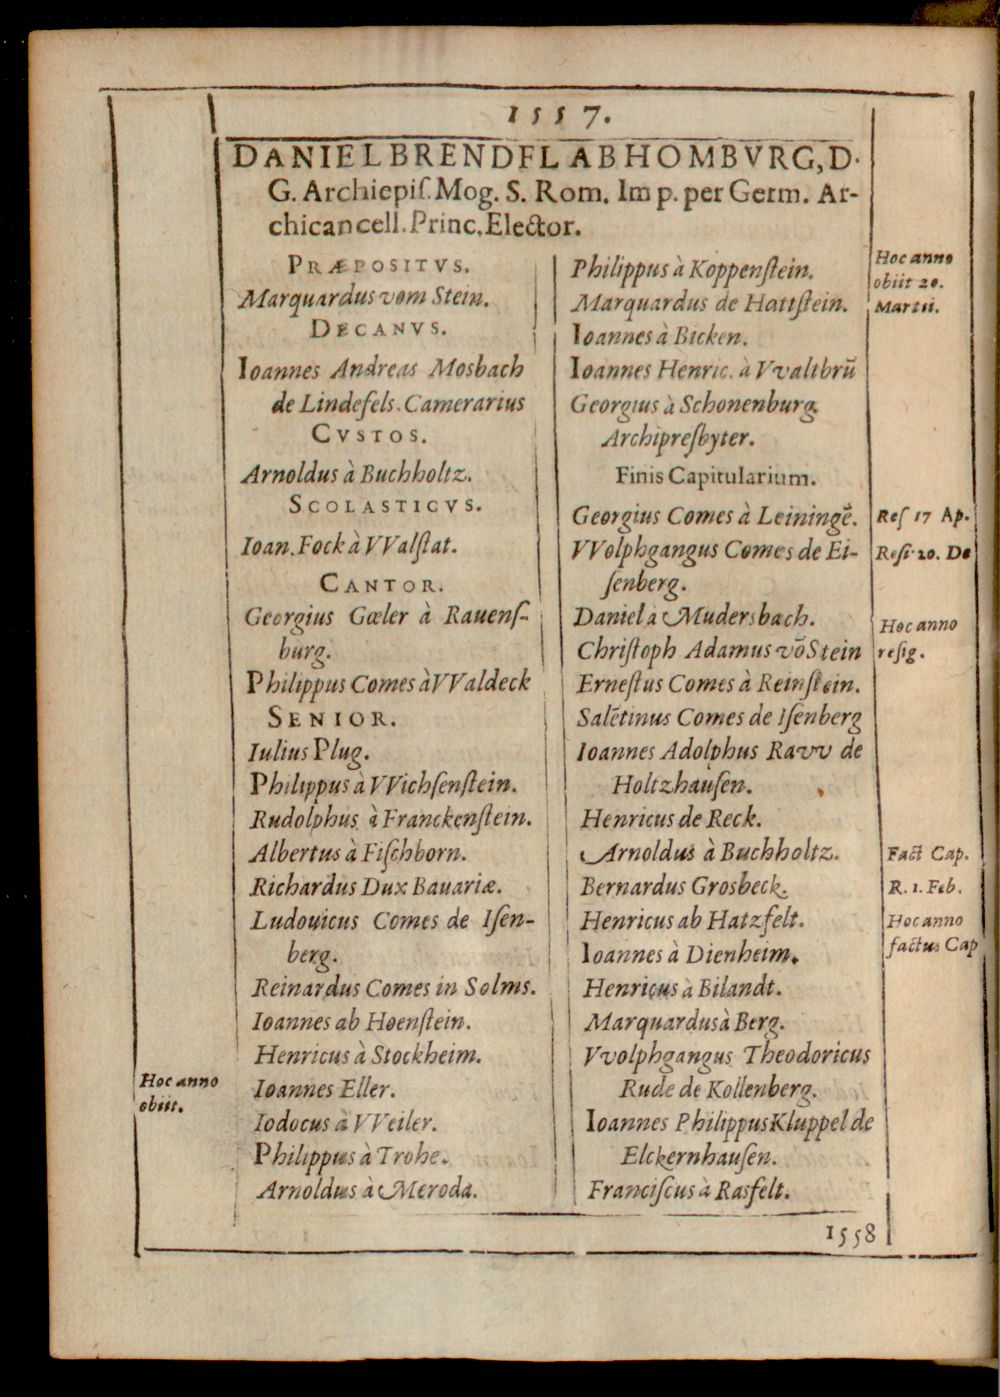 1557.
DANIEL BRENDEL AB HOMBVRG, D.
G. Archiepiſ. Mog. S. Rom. Imp. per Germ. Ar-
chicancell. Princ, Elector.
PRÆPOSITVS.
Marquardus vom Stein.
DECANVS.
Ioannes Andreas Mosbach
de Lindefels. Camerarius
CVSTOS.
Arnoldus à Buchholtz.
SCOLASTICVS.
Ioan. Fock à VValſtat.
CANTOR.
Georgius Gœler à Rauenſ-
burg.
Philippus Comes à VValdeck
SENIOR.
Iulius Plug.
Philippus à VVichſenſtein.
Rudolphus à Franckenſtein.
Albertus à Fiſchborn.
Richardus Dux Bauariæ.
Ludouicus Comes de Iſen-
berg.
Reinardus Comes in Solms.
Ioannes ab Hoenſtein.
Henricus à Stockheim.
Hoc anno
obiit.
Ioannes Eller.
Iodocus à VVeiler.
Philippus à Trohe.
Arnoldus à Meroda.
Philippus à Koppenſtein.
Hoc anno
obiit 20.
Martii.
Marquardus de Hattſtein.
Ioannes à Bicken.
Ioannes Henric. à Vvaltbrū
Georgius à Schonenburg.
Archipreſbyter.
Finis Capitularium.
Georgius Comes à Leiningē.
Reſ 17 Ap.
VVolphgangus Comes de Ei-
Reſi. 20. De
ſenberg.
Daniel a Mudersbach.
Christoph Adamus vō Stein
Hoc anno
reſig.
Ernestus Comes à Reinſtein.
Salētinus Comes de Iſenberg
Ioannes Adolphus Ravv de
Holtzhauſen.
Henricus de Reck.
Arnoldus à Buchholtz.
Fact Cap.
Bernardus Grosbeck.
R. 1. Feb.
Henricus ab Hatzfelt.
Hoc anno
factus Cap
Ioannes à Dienheim.
Henricus à Bilandt.
Marquardus à Berg.
Vvolphgangus Theodoricus
Rude de Kollenberg.
Ioannes Philippus Kluppel de
Elckernhauſen.
Franciſcus à Rasfelt.
1558